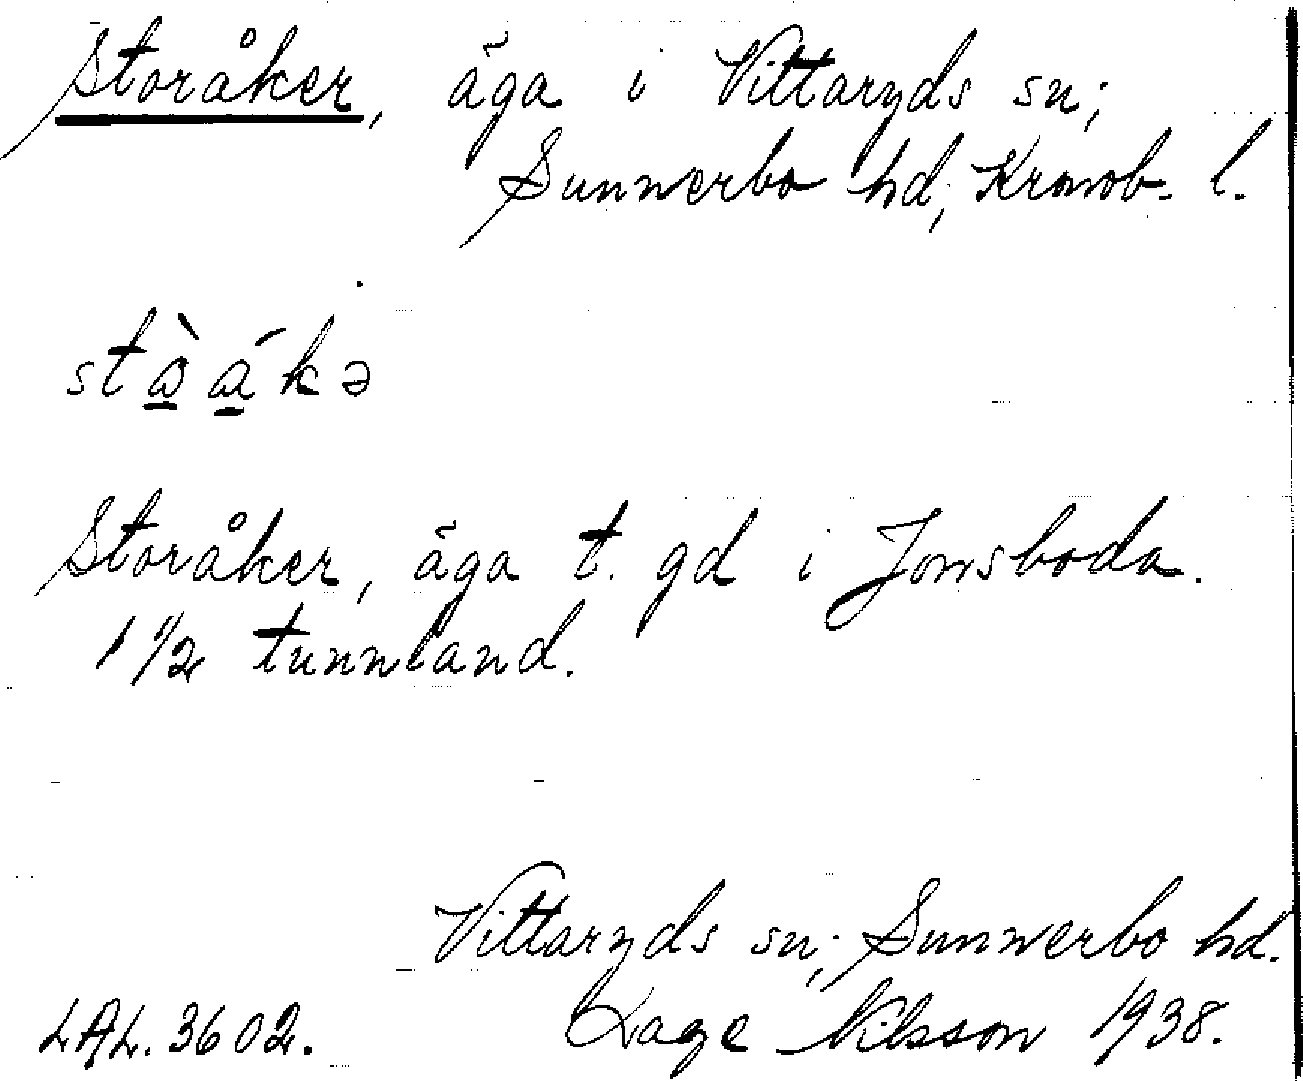 Storåker, äga i Vittaryds sn;
Sunnerbo hd; Kronob. l.
Storåker, äga t. gd i Jonsboda.
1 1/2 tunnland.
Vittaryds sn; Sunnerbo hd.
LAL. 3602. Lage Nilsson 1938.